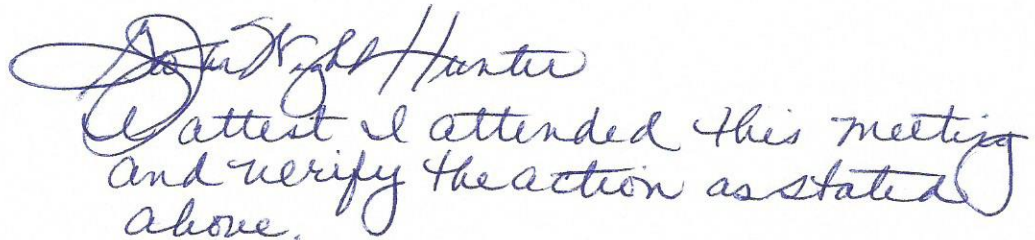 Wright Hunter
I attest I attended this meeting
and verify the action as stated
above.